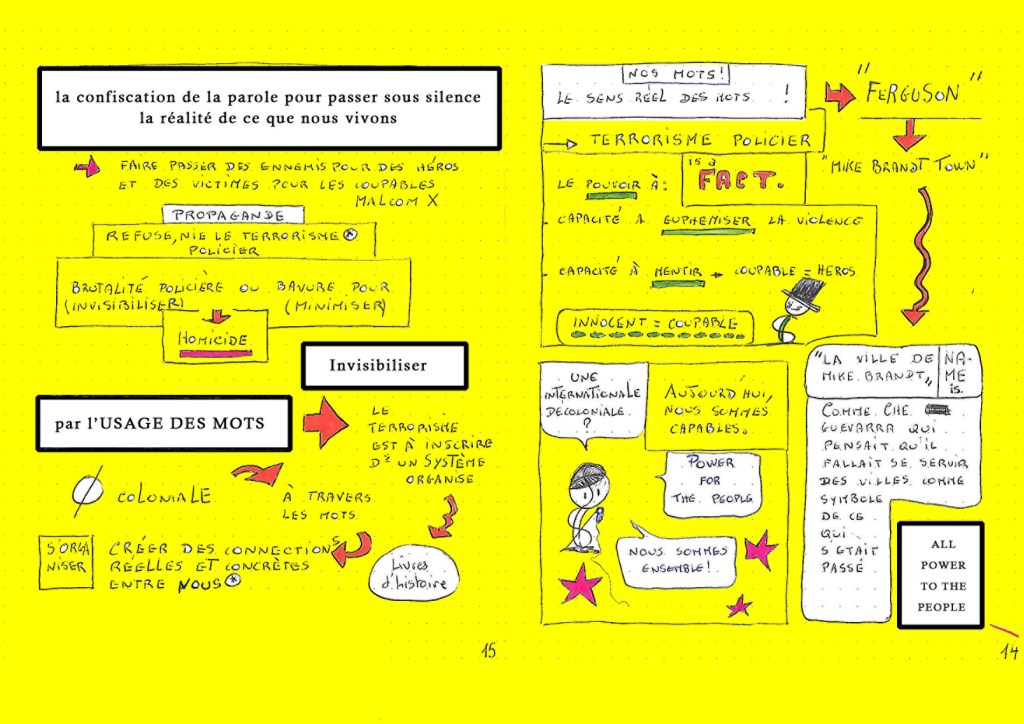 la confiscation de la parole pour passer sous silence
la réalité de ce que nous vivons
FAIRE PASSER DES ENNEMIS POUR DES HÉROS
ET DES VICTIMES POUR LES COUPABLES
MALCOM X
PROPAGANDE
REFUSE, NIE LE TERRORISME
POLICIER
BRUTALITÉ POLICIÈRE OU BAVURE POUR
(INVISIBILISER) (MINIMISER)
HOMICIDE
Invisibiliser
par l'USAGE DES MOTS
LE
TERRORISME
EST À INSCRIRE
DS UN SYSTÈME
ORGANISE
COLONIALE
À TRAVERS
LES MOTS
S'ORGA
NISER
CRÉER DES CONNECTIONS
RÉELLES ET CONCRÈTES
ENTRE NOUS
Livres
d'histoire
15
NOS MOTS!
LE SENS RÉEL DES MOTS !
TERRORISME POLICIER
is a
FACT.
LE POUVOIR À:
- CAPACITÉ À EUPHEMISER LA VIOLENCE
- CAPACITÉ À MENTIR → COUPABLE = HEROS
INNOCENT = COUPABLE
"FERGUSON"
"MIKE BRANDT TOWN"
"LA VILLE DE
MIKE BRANDT"
NA-
ME
is.
COMME CHE
GUEVARRA QUI
PENSAIT QU'IL
FALLAIT SE SERVIR
DES VILLES COMME
SYMBOLE
DE CE
QUI
S'ÉTAIT
PASSÉ
UNE
INTERNATIONALE
DÉCOLONIALE
?
AUJOURD'HUI,
NOUS SOMMES
CAPABLES.
POWER
FOR
THE PEOPLE
NOUS SOMMES
ENSEMBLE!
ALL
POWER
TO THE
PEOPLE
14